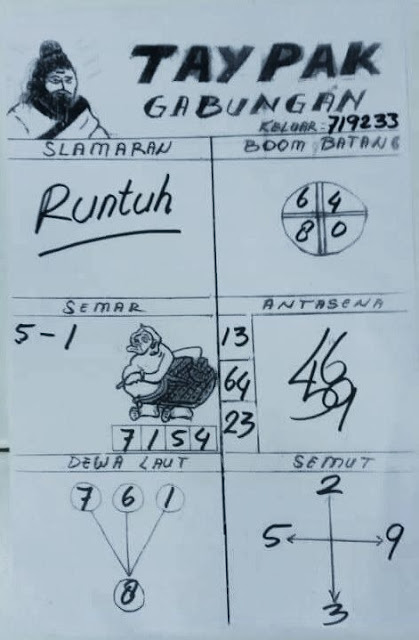 TAYPAK
GABUNGAN
KELUAR: 719233
SLAMARAN
BOOM BATANG
Runtuh
6 4
8 0
SEMAR
ANTASENA
5-1
13
64
23
7 1 5 4
DEWA LAUT
SEMUT
7 6 1
8
2
5 9
3